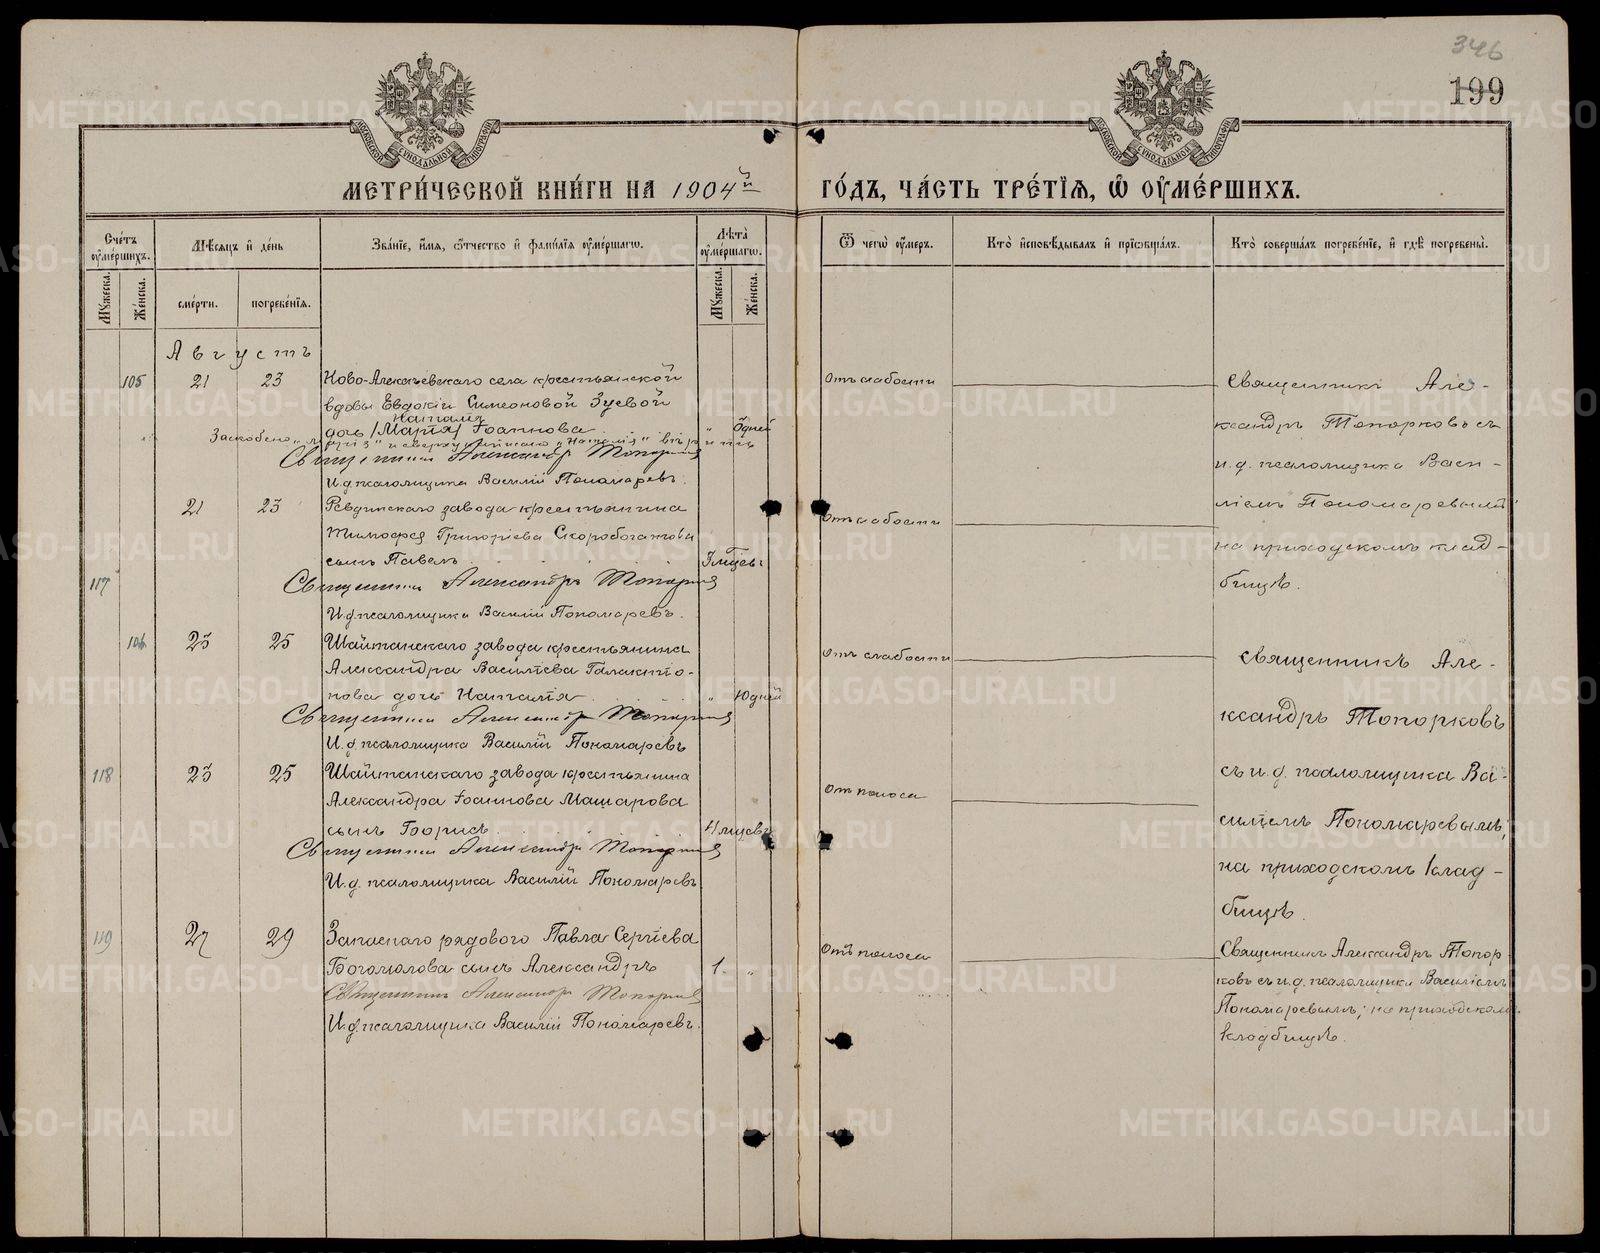 346
199
МОСКОВСКОЙ СѴНОДАЛЬНОЙ ТИПОГРАФІИ
МОСКОВСКОЙ СѴНОДАЛЬНОЙ ТИПОГРАФІИ
МЕТРИ́ЧЕСКОЙ КНИ́ГИ НА 1904й ГО́ДЪ, ЧА́СТЬ ТРЕ́ТІѦ, Ѽ ОУ҆МЕ́РШИХЪ.
Счетъ оумершихъ.
Мужеска.
Женска.
Мѣсяцъ и день
смерти.
погребенія.
Званіе, имя, отчество и фамилія оумершагw.
Лѣта оумершагw.
Мужеска.
Женска.
Ѿ чегw оумеръ.
Кто исповѣдывалъ и пріобщалъ.
Кто совершалъ погребеніе, и гдѣ погребены.
Августъ
105 21 23 Ново-Алексѣевскаго села крестьянской
вдовы Евдокіи Симеоновой Зуевой
Наталія
дочь /Марія/ Іоаннова " 6 дней
Отъ слабости
Заскоблено "Марія" и сверху написано "Наталія" вѣрить
Священникъ Александръ Топорковъ
И.д. псаломщика Василій Пономаревъ.
Священникъ Але-
ксандръ Топорковъ съ
и.д. псаломщика Васи-
ліемъ Пономаревымъ
на приходскомъ клад-
бищѣ.
117 21 23 Ревдинскаго завода крестьянина
Тимофея Григоріева Скоробогатова
сынъ Павелъ
Отъ слабости
Священникъ Александръ Топорковъ
И.д. псаломщика Василій Пономаревъ.
106 23 25 Шайтанскаго завода крестьянина
Александра Василіева Галактіо-
нова дочь Наталія " 10 дней
Отъ слабости
Священникъ Александръ Топорковъ
И.д. псаломщика Василій Пономаревъ
Священникъ Але-
ксандръ Топорковъ
съ и.д. псаломщика Ва-
силіемъ Пономаревымъ,
на приходскомъ клад-
бищѣ.
118 23 25 Шайтанскаго завода крестьянина
Александра Іоаннова Машарова
сынъ Борисъ 4 мѣсцевъ
Отъ поноса
Священникъ Александръ Топорковъ
И.д. псаломщика Василій Пономаревъ
119 27 29 Запаснаго рядового Павла Сергіева
Богомолова сынъ Александръ 1. "
Отъ поноса
Священникъ Александръ Топорковъ
И.д. псаломщика Василій Пономаревъ.
Священникъ Александръ Топор-
ковъ съ и.д. псаломщика Василіемъ
Пономаревымъ; на приходскомъ
кладбищѣ.
METRIKI.GASO-URAL.RU